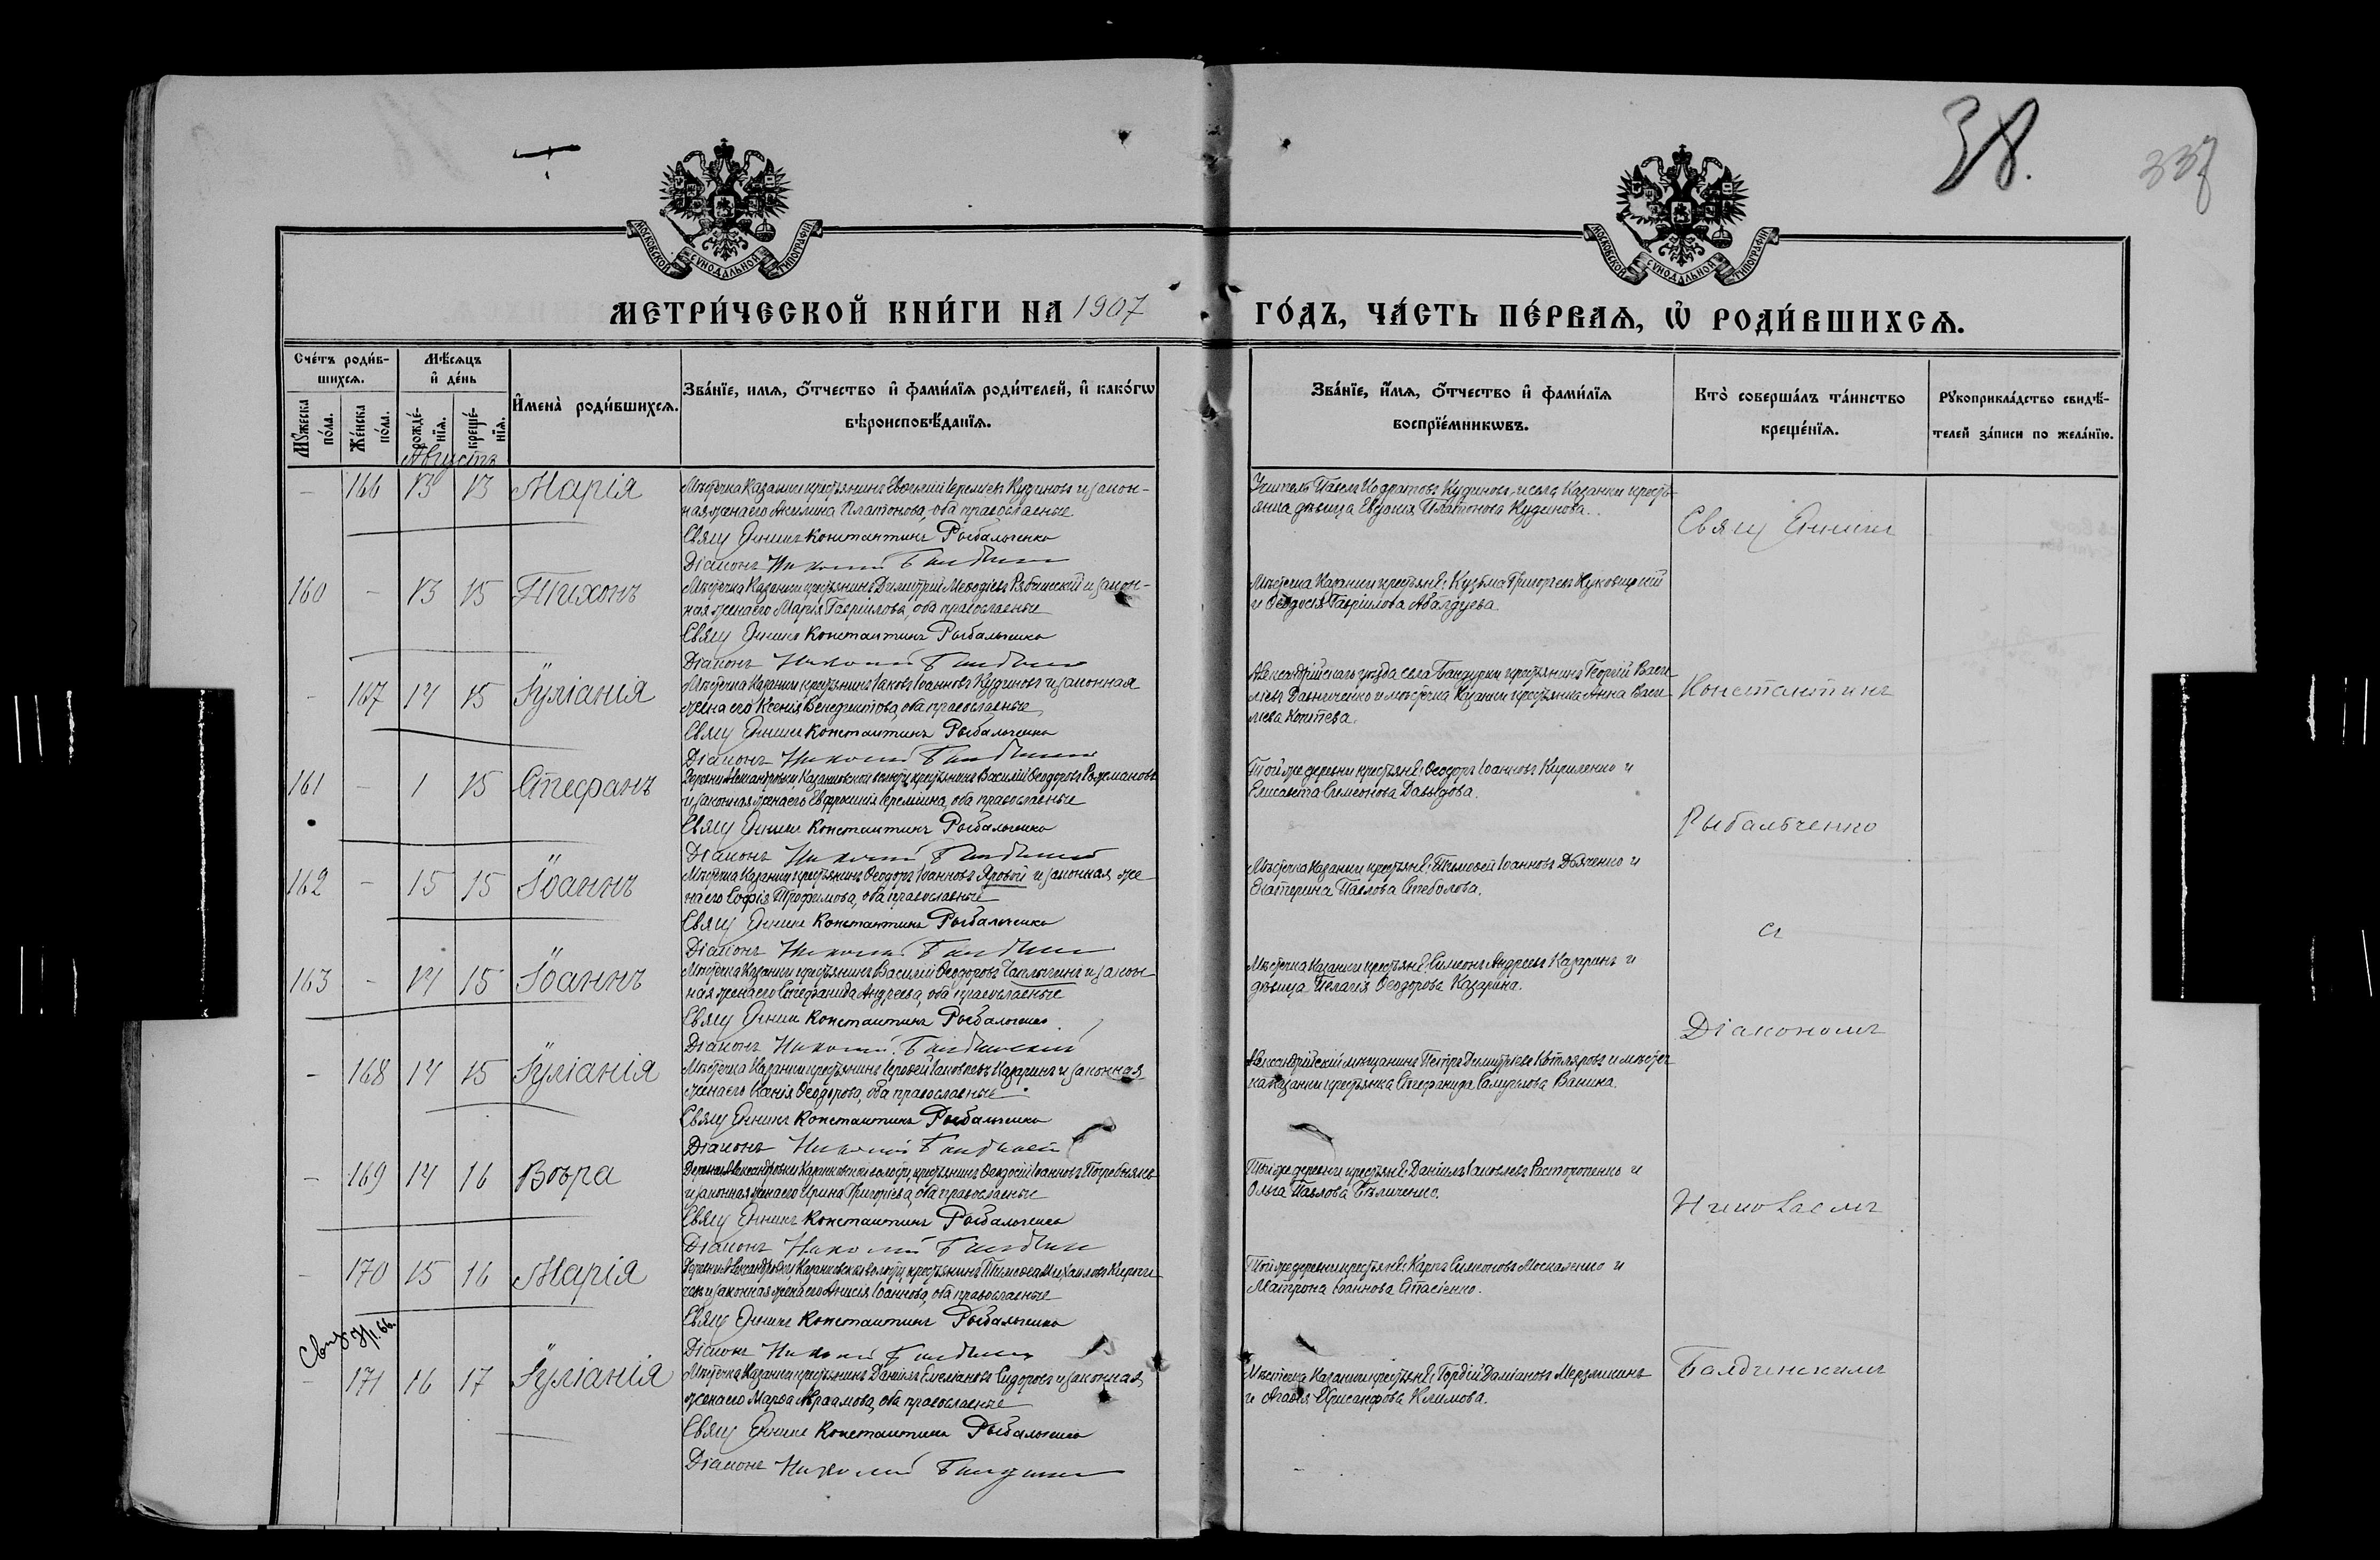 38.
337
МОСКОВСКОЙ СѴНОДАЛЬНОЙ ТИПОГРАФІИ
МОСКОВСКОЙ СѴНОДАЛЬНОЙ ТИПОГРАФІИ
МЕТРИ́ЧЕСКОЙ КНИ́ГИ НА 1907 ГО́ДЪ, ЧА́СТЬ ПЕ́РВАѦ, Ѽ РОДИ́ВШИХСѦ.
Сче́тъ роди́в-
шихсѧ.
Мѣ́сѧцъ
и҆ де́нь
Мꙋ́жеска по́ла.
Же́нска по́ла.
рожде́-нїѧ.
креще́-нїѧ.
И҆мена̀ роди́вшихсѧ.
Зва́нїе, имѧ, ѻ҆́тчество и҆ фами́лїѧ роди́телей, и҆ како́гѡ
вѣроисповѣ́данїѧ.
Зва́нїе, и҆́мѧ, ѻ҆́тчество и҆ фами́лїѧ
воспрїе́мникѡвъ.
Кто̀ соверша́лъ та́инство
креще́нїѧ.
Рꙋкоприкла́дство свидѣ́-
телей за́писи по жела́нїю.
Августъ
- 166 13 13 Марія
Мѣстечка Казанки крестьянинъ Евѳимій Іеремѣевъ Кудиновъ и закон-
ная жена его Акилина Платонова, оба православные
Свящ Константинъ Рыбальченко
Діаконъ Николай
Учитель Павелъ Кодратовъ Кудиновъ и села Казанки кресть-
янка дѣвица Евдокія Платонова Кудинова.
160 - 13 15 Тихонъ
Мѣстечка Казанки крестьянинъ Димитрій Меѳодіевъ Рябчинскій и закон-
ная жена его Марія Гавріилова, оба православные
Свящ Константинъ Рыбальченко
Діаконъ Николай
Мѣстечка Казанки крестьяне: Кузьма Григорьевъ Жуковицкій
и Ѳеодосія Гавріилова Абалдуева.
- 167 14 15 Іуліанія
Мѣстечка Казанки крестьянинъ Іаковъ Іоанновъ Кудиновъ и законная
жена его Ксенія Венедиктова, оба православные
Свящ Константинъ Рыбальченко
Діаконъ Николай
Александрійскаго уѣзда села Бандурки крестьянинъ Георгій Васи-
льевъ и мѣстечка Казанки крестьянка Анна Васи-
льева Коптева.
161 - 1 15 Стефанъ
Деревни Александровки, Казанковской волости, крестьянинъ Василій Ѳеодоровъ
и законная жена его Евфросинія, оба православные
Свящ Константинъ Рыбальченко
Діаконъ Николай
Той же деревни крестьяне: Ѳеодоръ Іоанновъ Кириленко и
Елисавета Симеонова Давыдова.
162 - 15 15 Іоаннъ
Мѣстечка Казанки крестьянинъ Ѳеодоръ Іоанновъ Яровой и законная же-
на его Софія Трофимова, оба православные
Свящ Константинъ Рыбальченко
Діаконъ Николай
Мѣстечка Казанки крестьяне: Тимоѳей Іоанновъ Дьяченко и
Екатерина Павлова Стеболова.
163 - 14 15 Іоаннъ
Мѣстечка Казанки крестьянинъ Василій Ѳеодоровъ Чаплыгинъ и закон-
ная жена его Стефанида Андреева, оба православные
Свящ Константинъ Рыбальченко
Діаконъ Николай
Мѣстечка Казанки крестьяне: Симеонъ Андреевъ Казаринъ и
дѣвица Пелагія Ѳеодорова Казарина.
- 168 14 15 Іуліанія
Мѣстечка Казанки крестьянинъ Сергѣй Іаковлевъ Казаринъ и законная
жена его Ксенія Ѳеодорова, оба православные
Свящ Константинъ Рыбальченко
Діаконъ Николай
Александрійскій мѣщанинъ Петръ Димитріевъ Котляровъ и мѣстеч-
ка Казанки крестьянка Стефанида Самуилова Ванина.
- 169 14 16 Вѣра
Деревни Александровки, Казанковской волости, крестьянинъ Ѳеодосій Іоанновъ Погребнякъ
и законная жена его Ирина Григоріева, оба православные
Свящ Константинъ Рыбальченко
Діаконъ Николай
Той же деревни крестьяне: Даніилъ Іаковлевъ Расторопенко и
Ольга Павлова Бѣличенко.
- 170 15 16 Марія
Деревни Александровки, Казанковской волости, крестьянинъ Тимоѳей Михаиловъ Кирпи-
чевъ и законная жена его Анисія Іоаннова, оба православные
Свящ Константинъ Рыбальченко
Діаконъ Николай
Той же деревни крестьяне: Карпъ Симеоновъ Москаленко и
Матрона Іоаннова Стасіенко.
- 171 16 17 Іуліанія
Мѣстечка Казанки крестьянинъ Даніилъ Емеліановъ Сидоровъ и законная
жена его Марѳа Авраамова, оба православные
Свящ Константинъ Рыбальченко
Діаконъ Николай
Мѣстечка Казанки крестьяне: Гордій Даміановъ Мерзликинъ
и Агаѳія Хрисанфова Климова.
Свящ
Константинъ
Рыбальченко
съ
Діакономъ
Николаемъ
Балдинскимъ